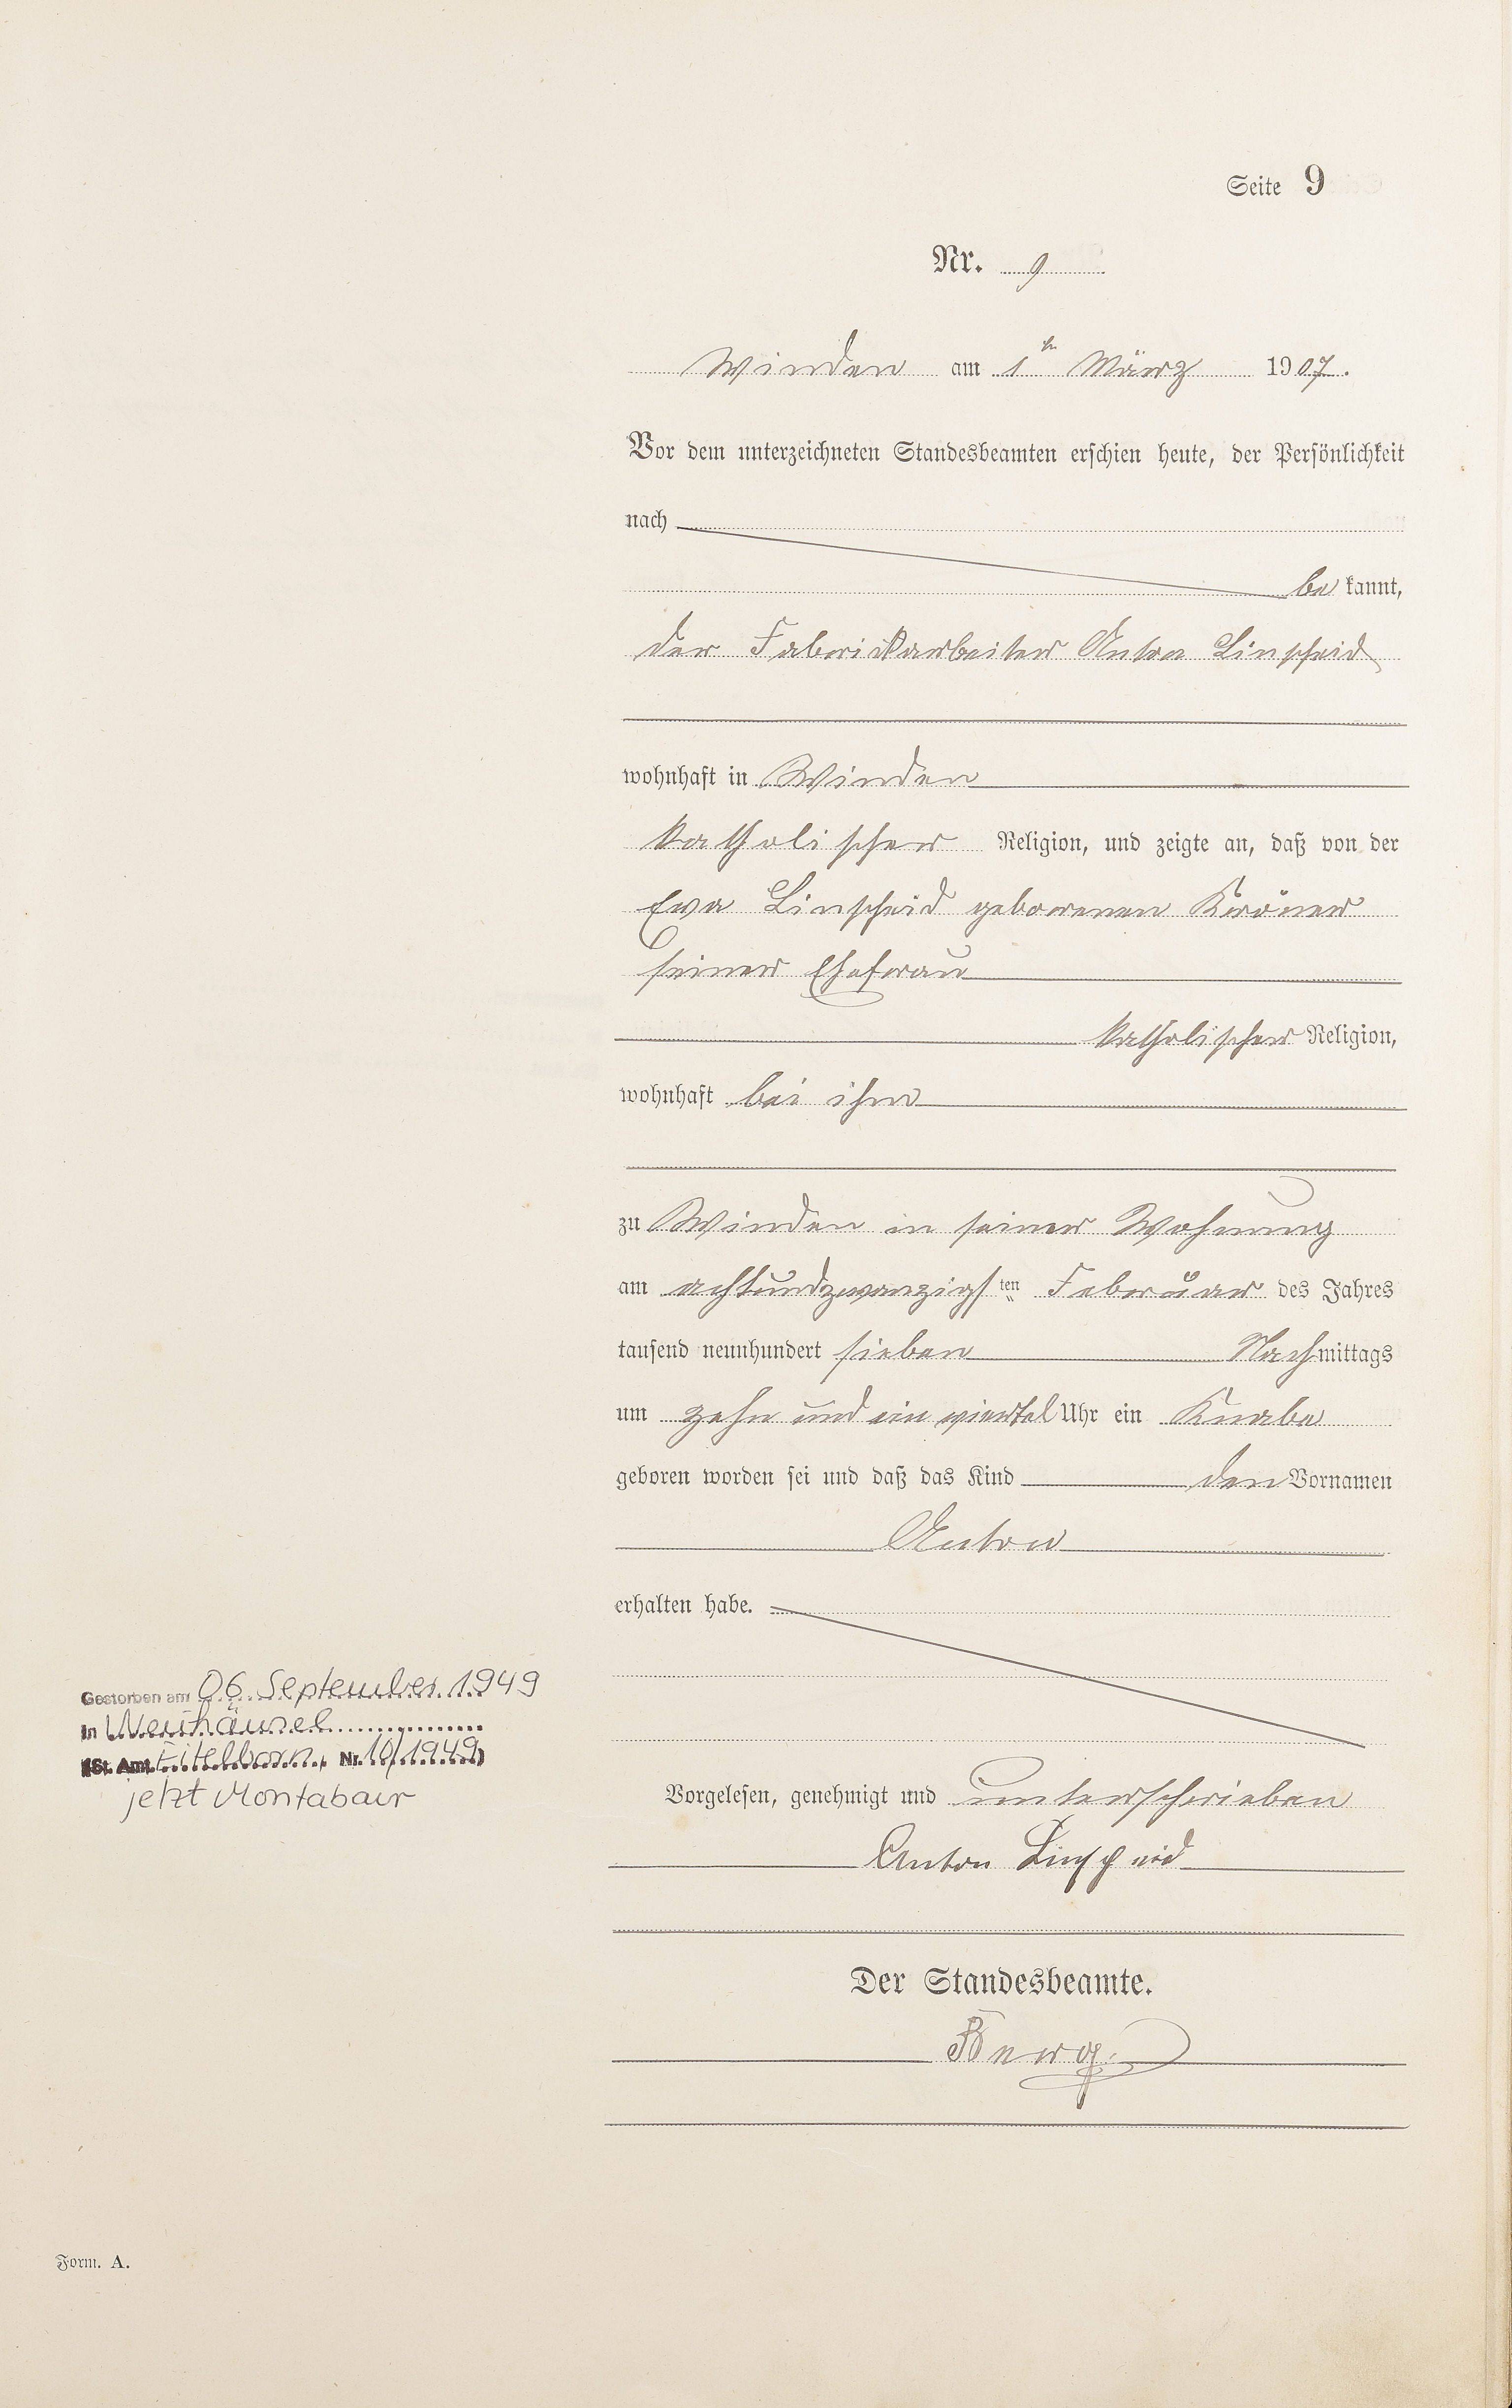 Seite 9
Nr. 9
Winden am 1ten März 1907.
Vor dem unterzeichneten Standesbeamten erschien heute, der Persönlichkeit
nach
bekannt,
der Fabrikarbeiter Anton Linscheid
wohnhaft in Winden
katholischer Religion, und zeigte an, daß von der
Eva Linscheid geborenen Kröner
seiner Ehefrau
katholischer Religion,
wohnhaft bei ihm
zu Winden in seiner Wohnung
am achtundzwanzigsten Februar des Jahres
tausend neunhundert sieben Nachmittags
um zehn und ein viertel Uhr ein Knabe
geboren worden sei und daß das Kind den Vornamen
Anton
erhalten habe.
Gestorben am 06. September 1949
in Neuhäusel
(St. Amt Eitelborn, Nr. 10/1949)
jetzt Montabaur
Vorgelesen, genehmigt und unterschrieben
Anton Linscheid
Der Standesbeamte.
Berg.
Form. A.